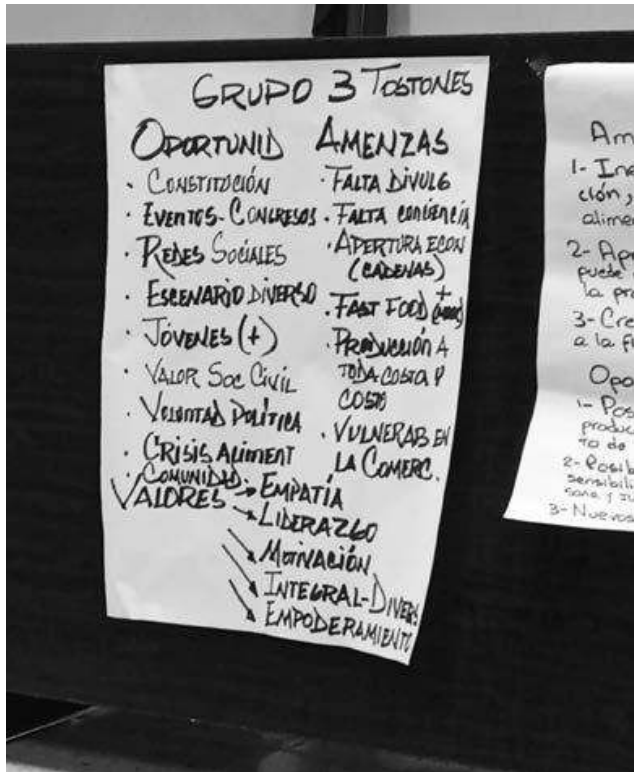 GRUPO 3 TOSTONES
OPORTUNID
· CONSTITUCIÓN
· EVENTOS-CONGRESOS
· REDES SOCIALES
· ESCENARIO DIVERSO
· JÓVENES (+)
· VALOR SOC CIVIL
· VOLUNTAD POLÍTICA
· CRISIS ALIMENT
· COMUNIDAD
AMENZAS
· FALTA DIVULG
· FALTA CONCIENCIA
· APERTURA ECON
(CADENAS)
· FAST FOOD +
· PRODUCCIÓN A
TODA COSTA Y
COSTO
· VULNERAB EN
LA COMERC.
VALORES → EMPATÍA
→ LIDERAZGO
→ MOTIVACIÓN
→ INTEGRAL-DIVERS
→ EMPODERAMIENTO
Am
1- Ine
ción,
alime
2- Ap
puede
la pr
3- Cre
a la f
Opo
1- Pos
produc
to de
2- Posib
sensibili
sana y
3- Nuevos